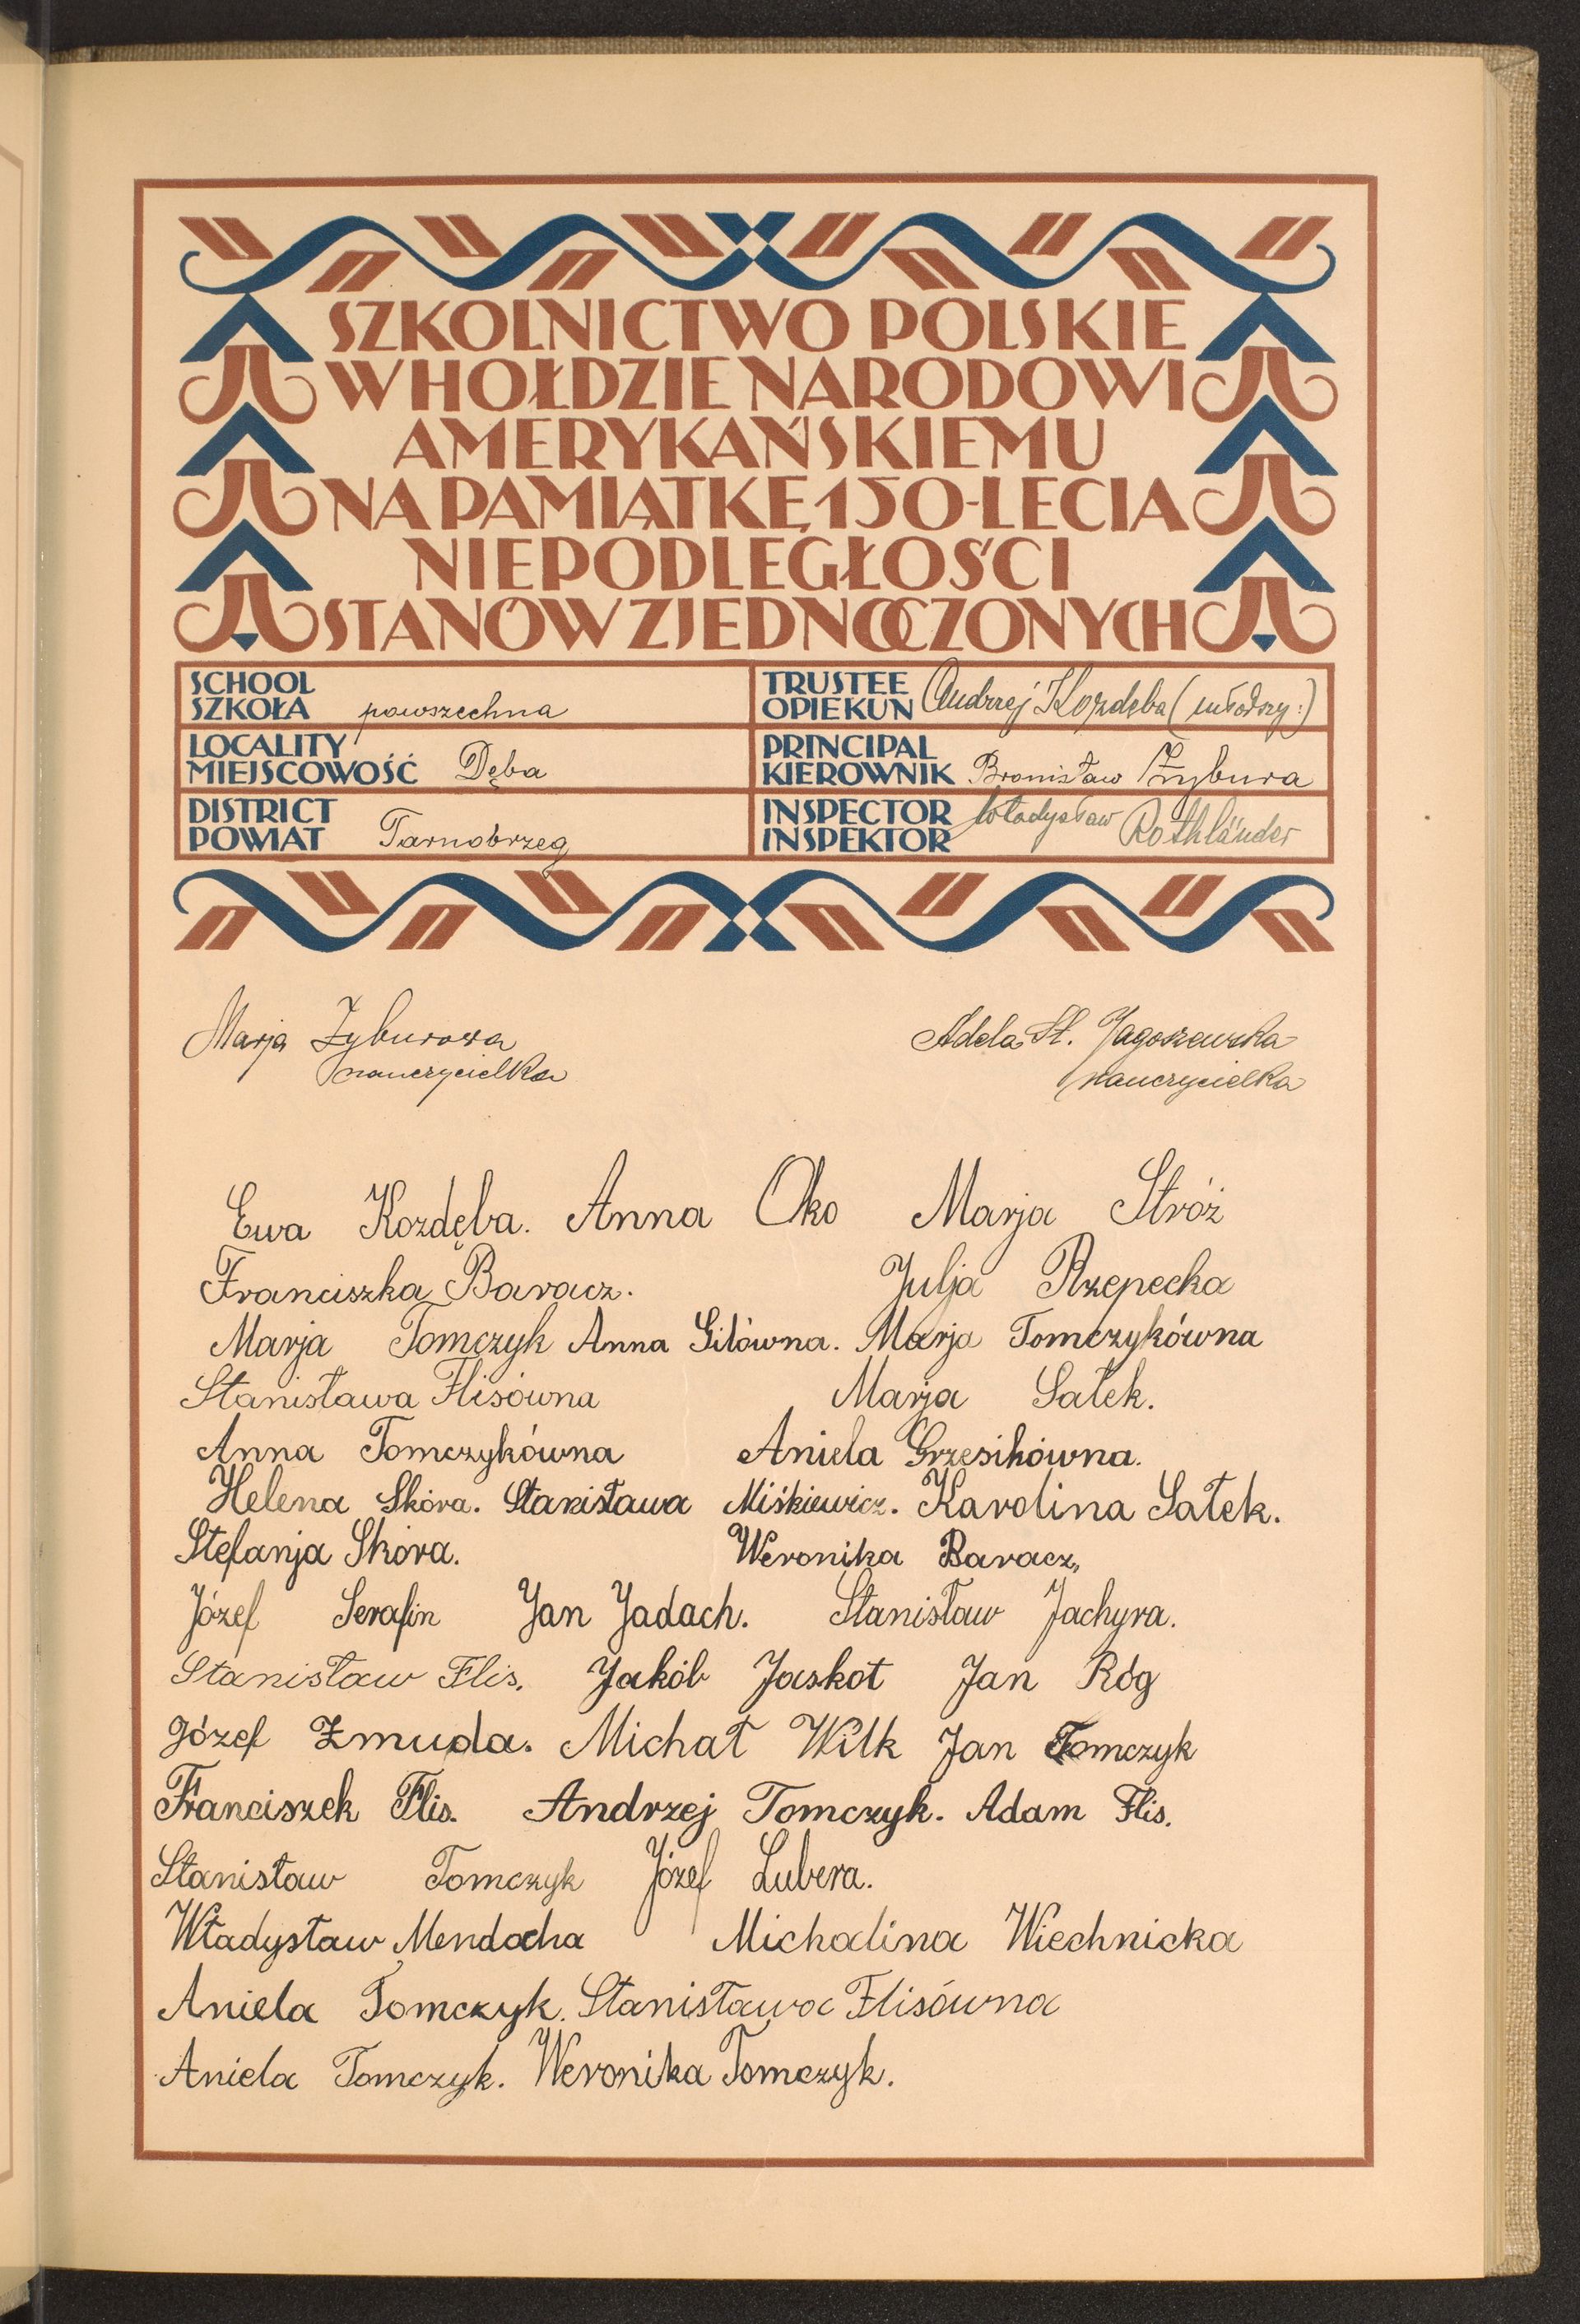 SZKOLNICTWO POLSKIE
W HOŁDZIE NARODOWI
AMERYKAŃSKIEMU
NA PAMIĄTKĘ 150-LECIA
NIEPODLEGŁOŚCI
STANÓW ZJEDNOCZONYCH
SCHOOL
SZKOŁA powszechna
TRUSTEE
OPIEKUN Andrzej Kozdęba (młodszy:)
LOCALITY
MIEJSCOWOŚĆ Dęba
PRINCIPAL
KIEROWNIK Bronisław Żybura
DISTRICT
POWIAT Tarnobrzeg
INSPECTOR
INSPEKTOR Władysław Rothländer
Marja Żyburowa
nauczycielka
Adela St. Jagoszewska
nauczycielka
Ewa Kozdęba. Anna Oko Marja Stróż
Franciszka Baracz. Julja Rzepecka
Marja Tomczyk Anna Gilówna. Marja Tomczykówna
Stanisława Flisówna Marja Sałek.
Anna Tomczykówna Aniela Grzesikówna.
Helena Skóra. Stanisława Miśkiewicz. Karolina Sałek.
Stefanja Skóra. Weronika Baracz,
Józef Serafin Jan Jadach. Stanisław Jachyra.
Stanisław Flis. Jakób Jaskot Jan Róg
Józef Żmuda. Michał Wilk Jan Tomczyk
Franciszek Flis. Andrzej Tomczyk. Adam Flis.
Stanisław Tomczyk Józef Lubera.
Władysław Mendocha Michalina Wiechnicka
Aniela Tomczyk. Stanisława Flisówna
Aniela Tomczyk. Weronika Tomczyk.